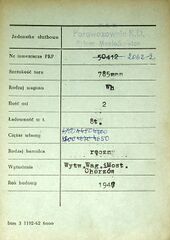 Jednostka służbowa
Parowozownia K.D.
Nr inwentarza PKP 50412 2062-2
Szerokość toru 785mm
Rodzaj wagonu Wh
Ilość osi 2
Ładowność w t. 8t.
Ciężar własny
Rodzaj hamulca ręczny
Wytwórnia Wytw.Wag.iMost. Chorzów
Rok budowy 194